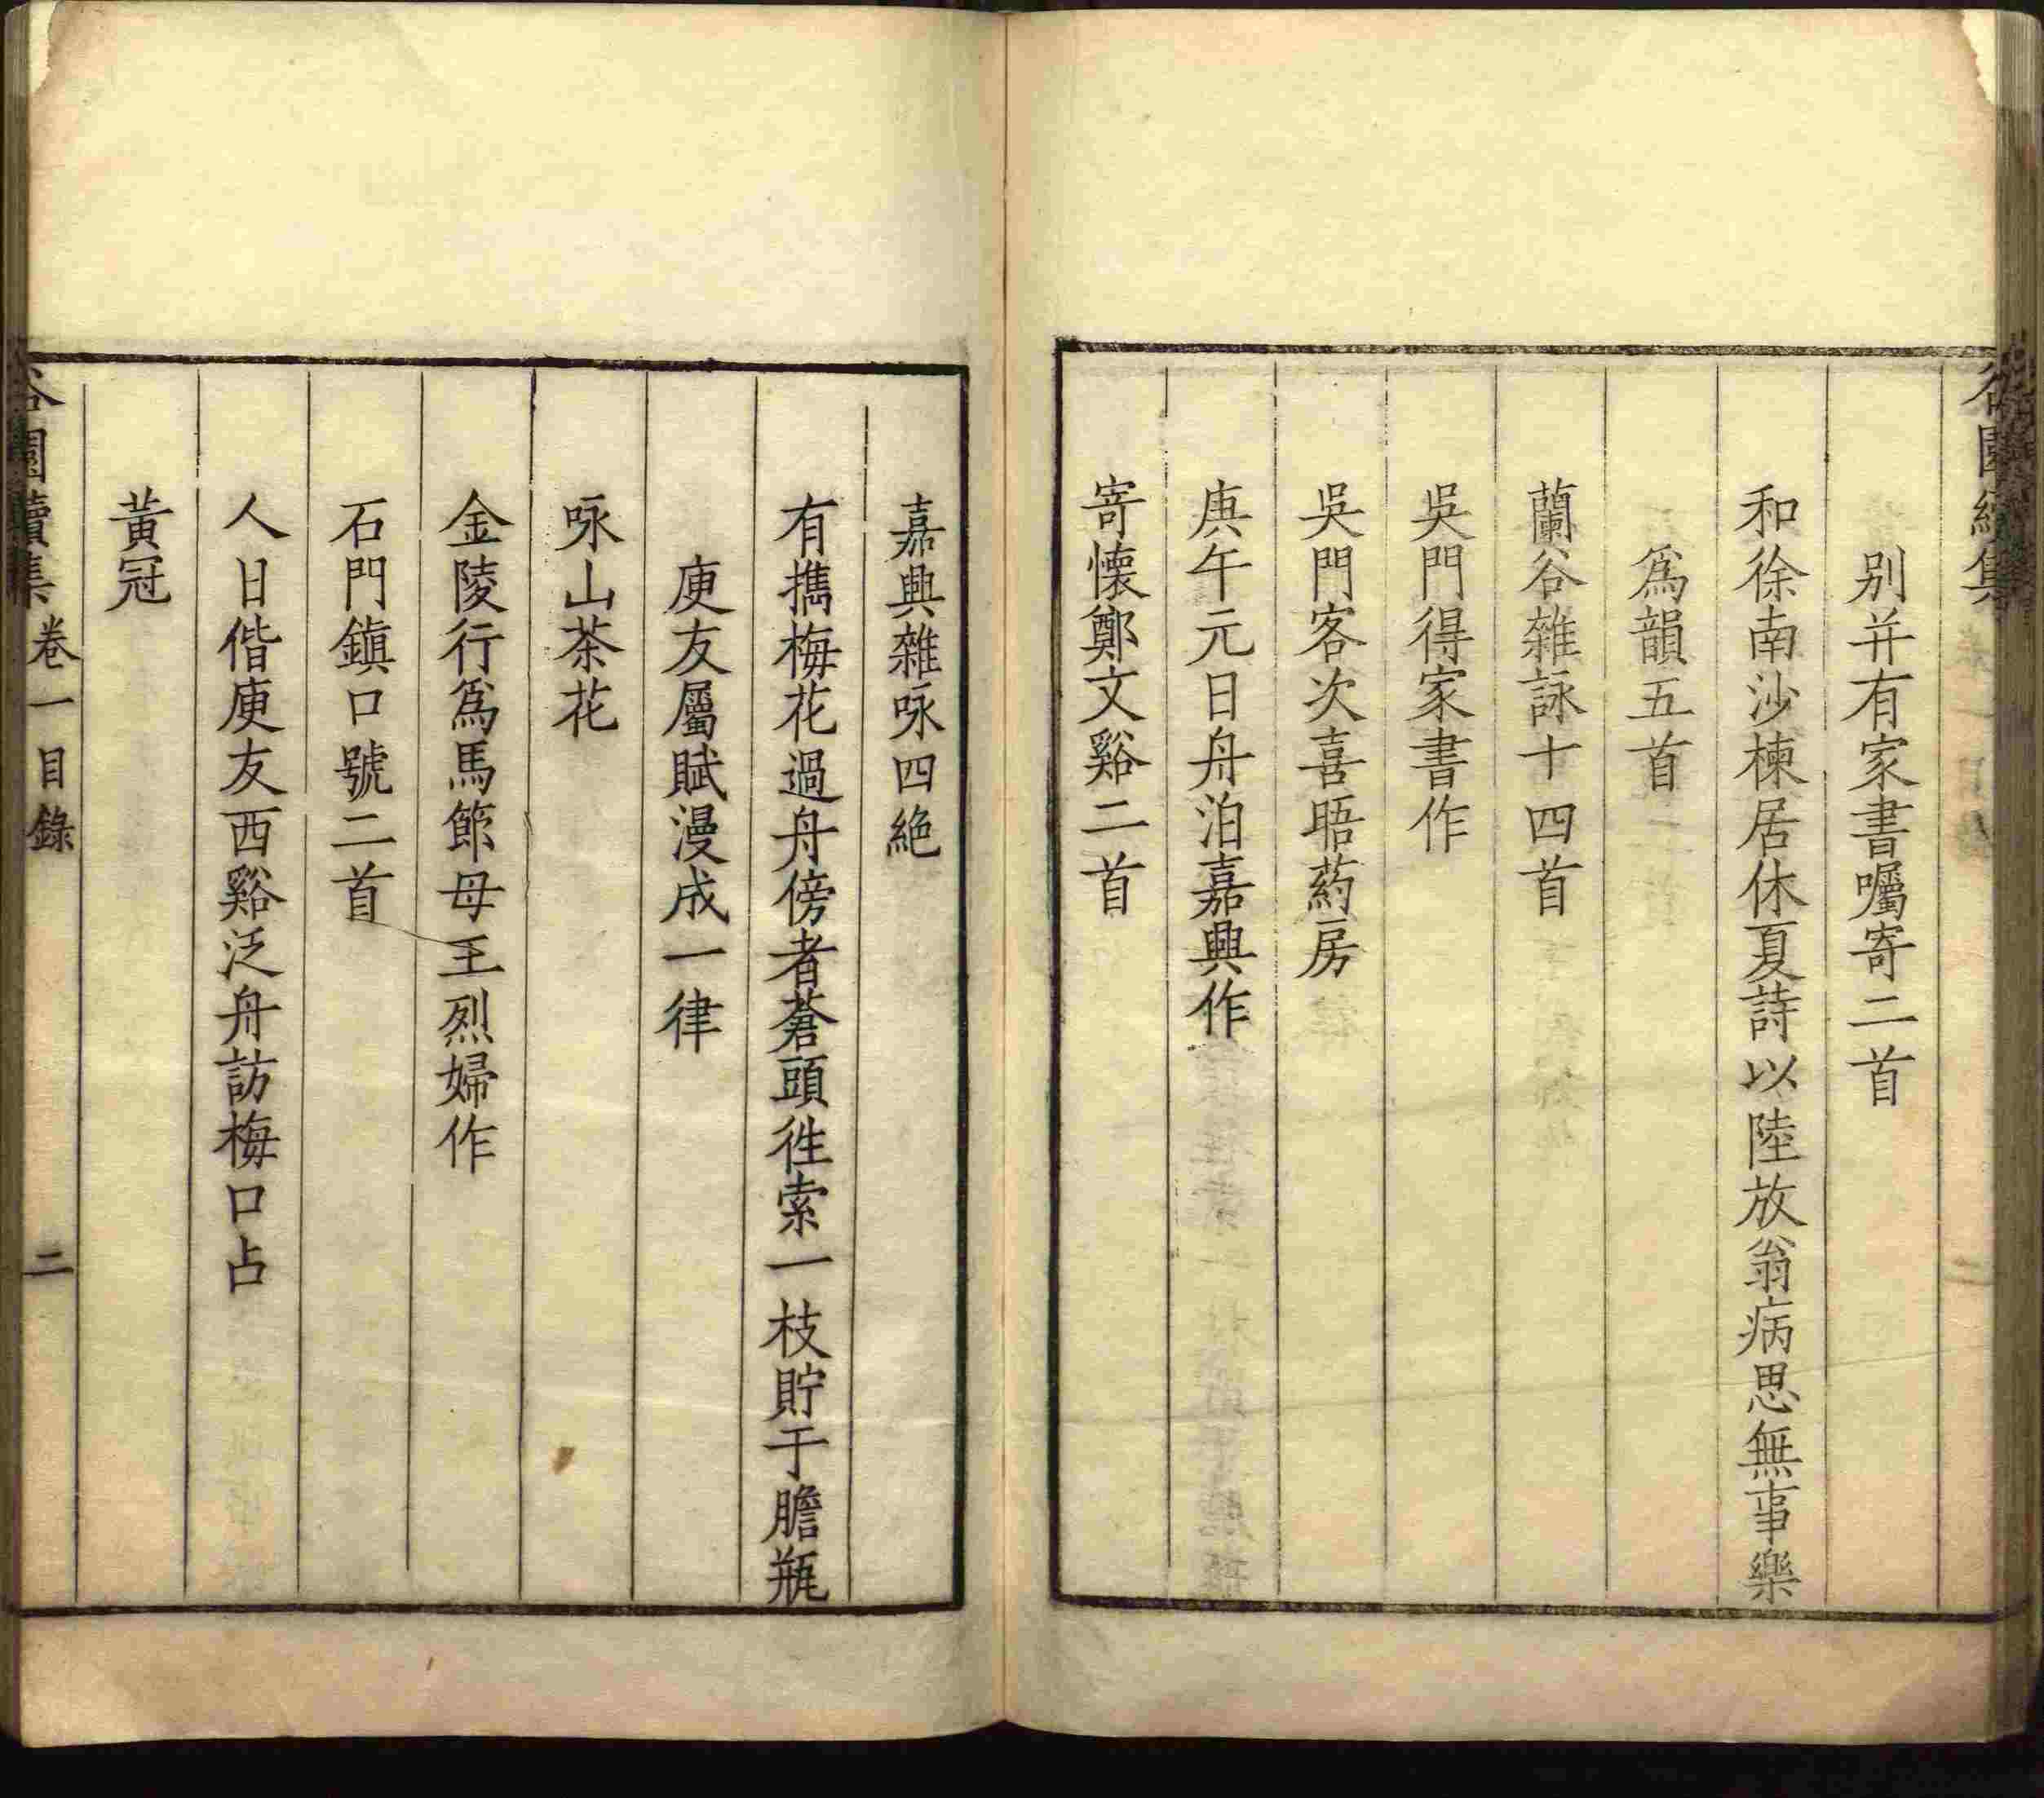 谷園續集
别并有家書囑寄二首
和徐南沙棟居休夏詩以陸放翁病思無事樂
為韻五首
蘭谷雜詠十四首
吳門得家書作
吳門客次喜晤葯房
庚午元日舟泊嘉興作
寄懷鄭文谿二首
嘉興雜咏四絶
有攜梅花過舟傍者蒼頭徃索一枝貯于膽瓶
庾友屬賦漫成一律
咏山茶花
金陵行為馬節母王烈婦作
石門鎭口號二首
人日偕庾友西谿泛舟訪梅口占
黃冠
谷園續集 卷一目錄 二